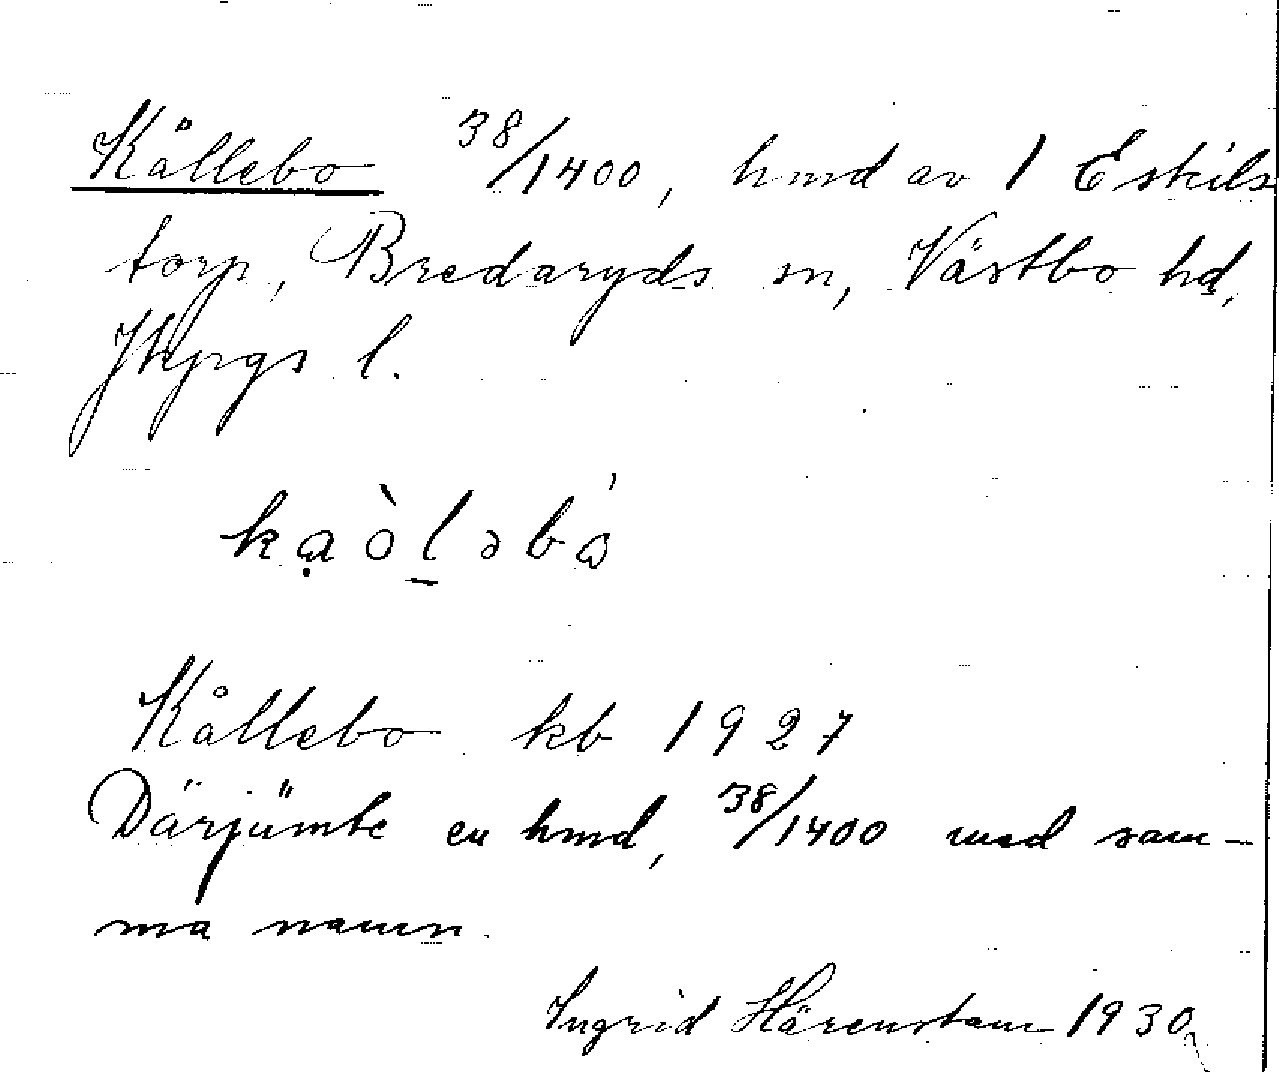 Kållebo 38/1400, hmd av 1 Eskils
torp, Bredaryds sn, Västbo hd,
Jkpgs l.
kạòl̲əbó
Kållebo kb 1927
Därjämte en hmd, 38/1400 med sam-
ma namn.
Ingrid Härenstam 1930